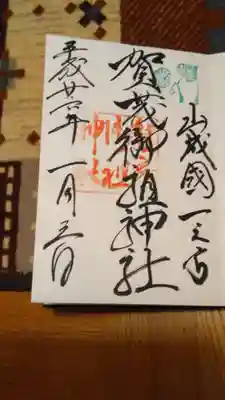 山城國一之宮
賀茂御祖神社
平成廿一年一月三日